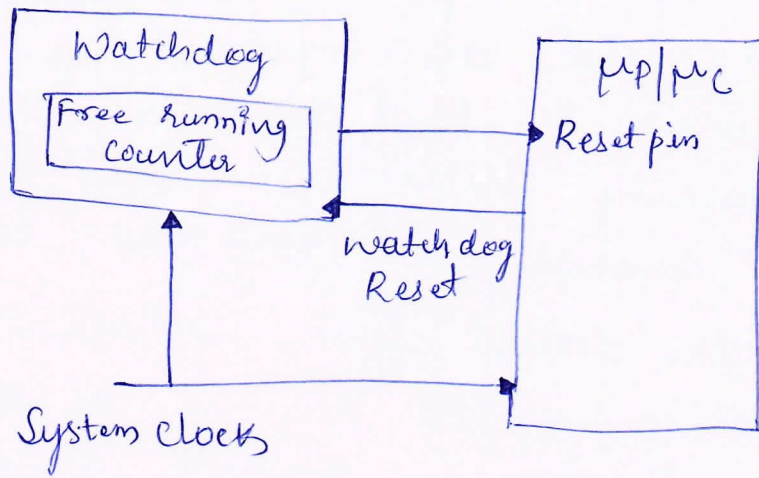 Watchdog
Free running
counter
μP/μC
Reset pin
watch dog
Reset
System clock